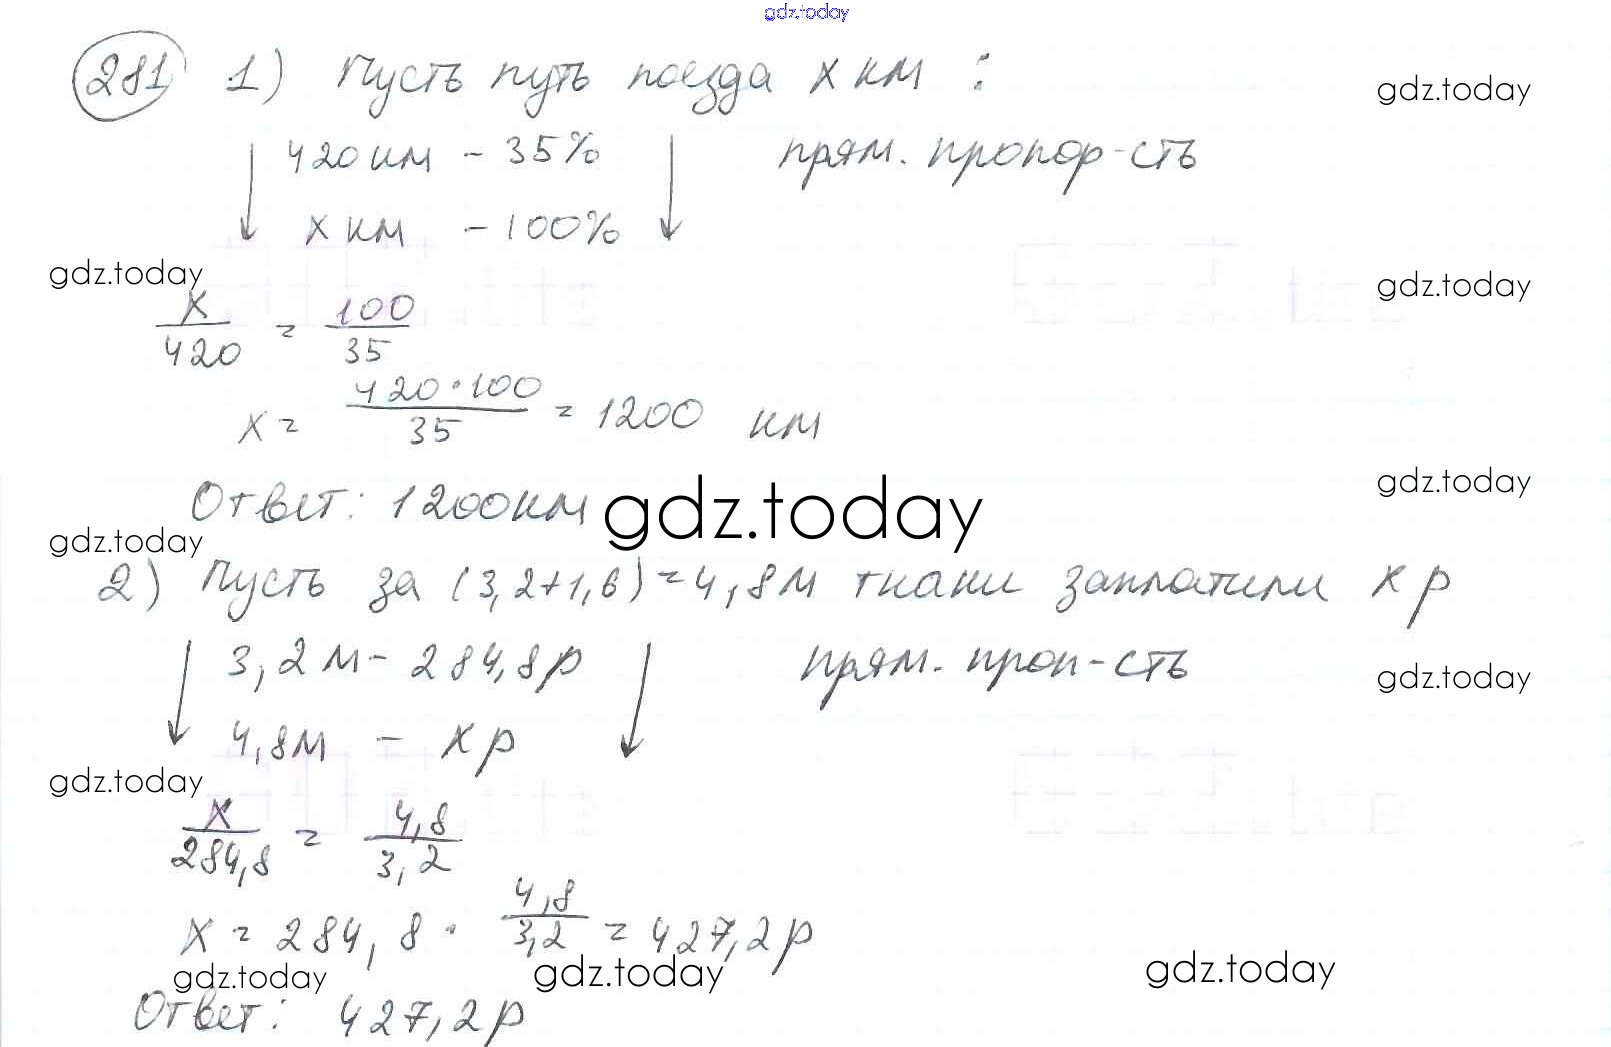 gdz.today
281 1) Пусть путь поезда x км :
gdz.today
420 км - 35% прям. пропор-сть
x км - 100%
gdz.today
gdz.today
x/420 = 100/35
x = 420·100/35 = 1200 км
gdz.today
Ответ: 1200 км
gdz.today
gdz.today
2) Пусть за (3,2+1,6)=4,8 м ткани заплатили x р
3,2 м - 284,8 р прям. проп-сть
gdz.today
4,8 м - x р
gdz.today
x/284,8 = 4,8/3,2
x = 284,8 · 4,8/3,2 = 427,2 р
gdz.today gdz.today gdz.today
Ответ: 427,2 р